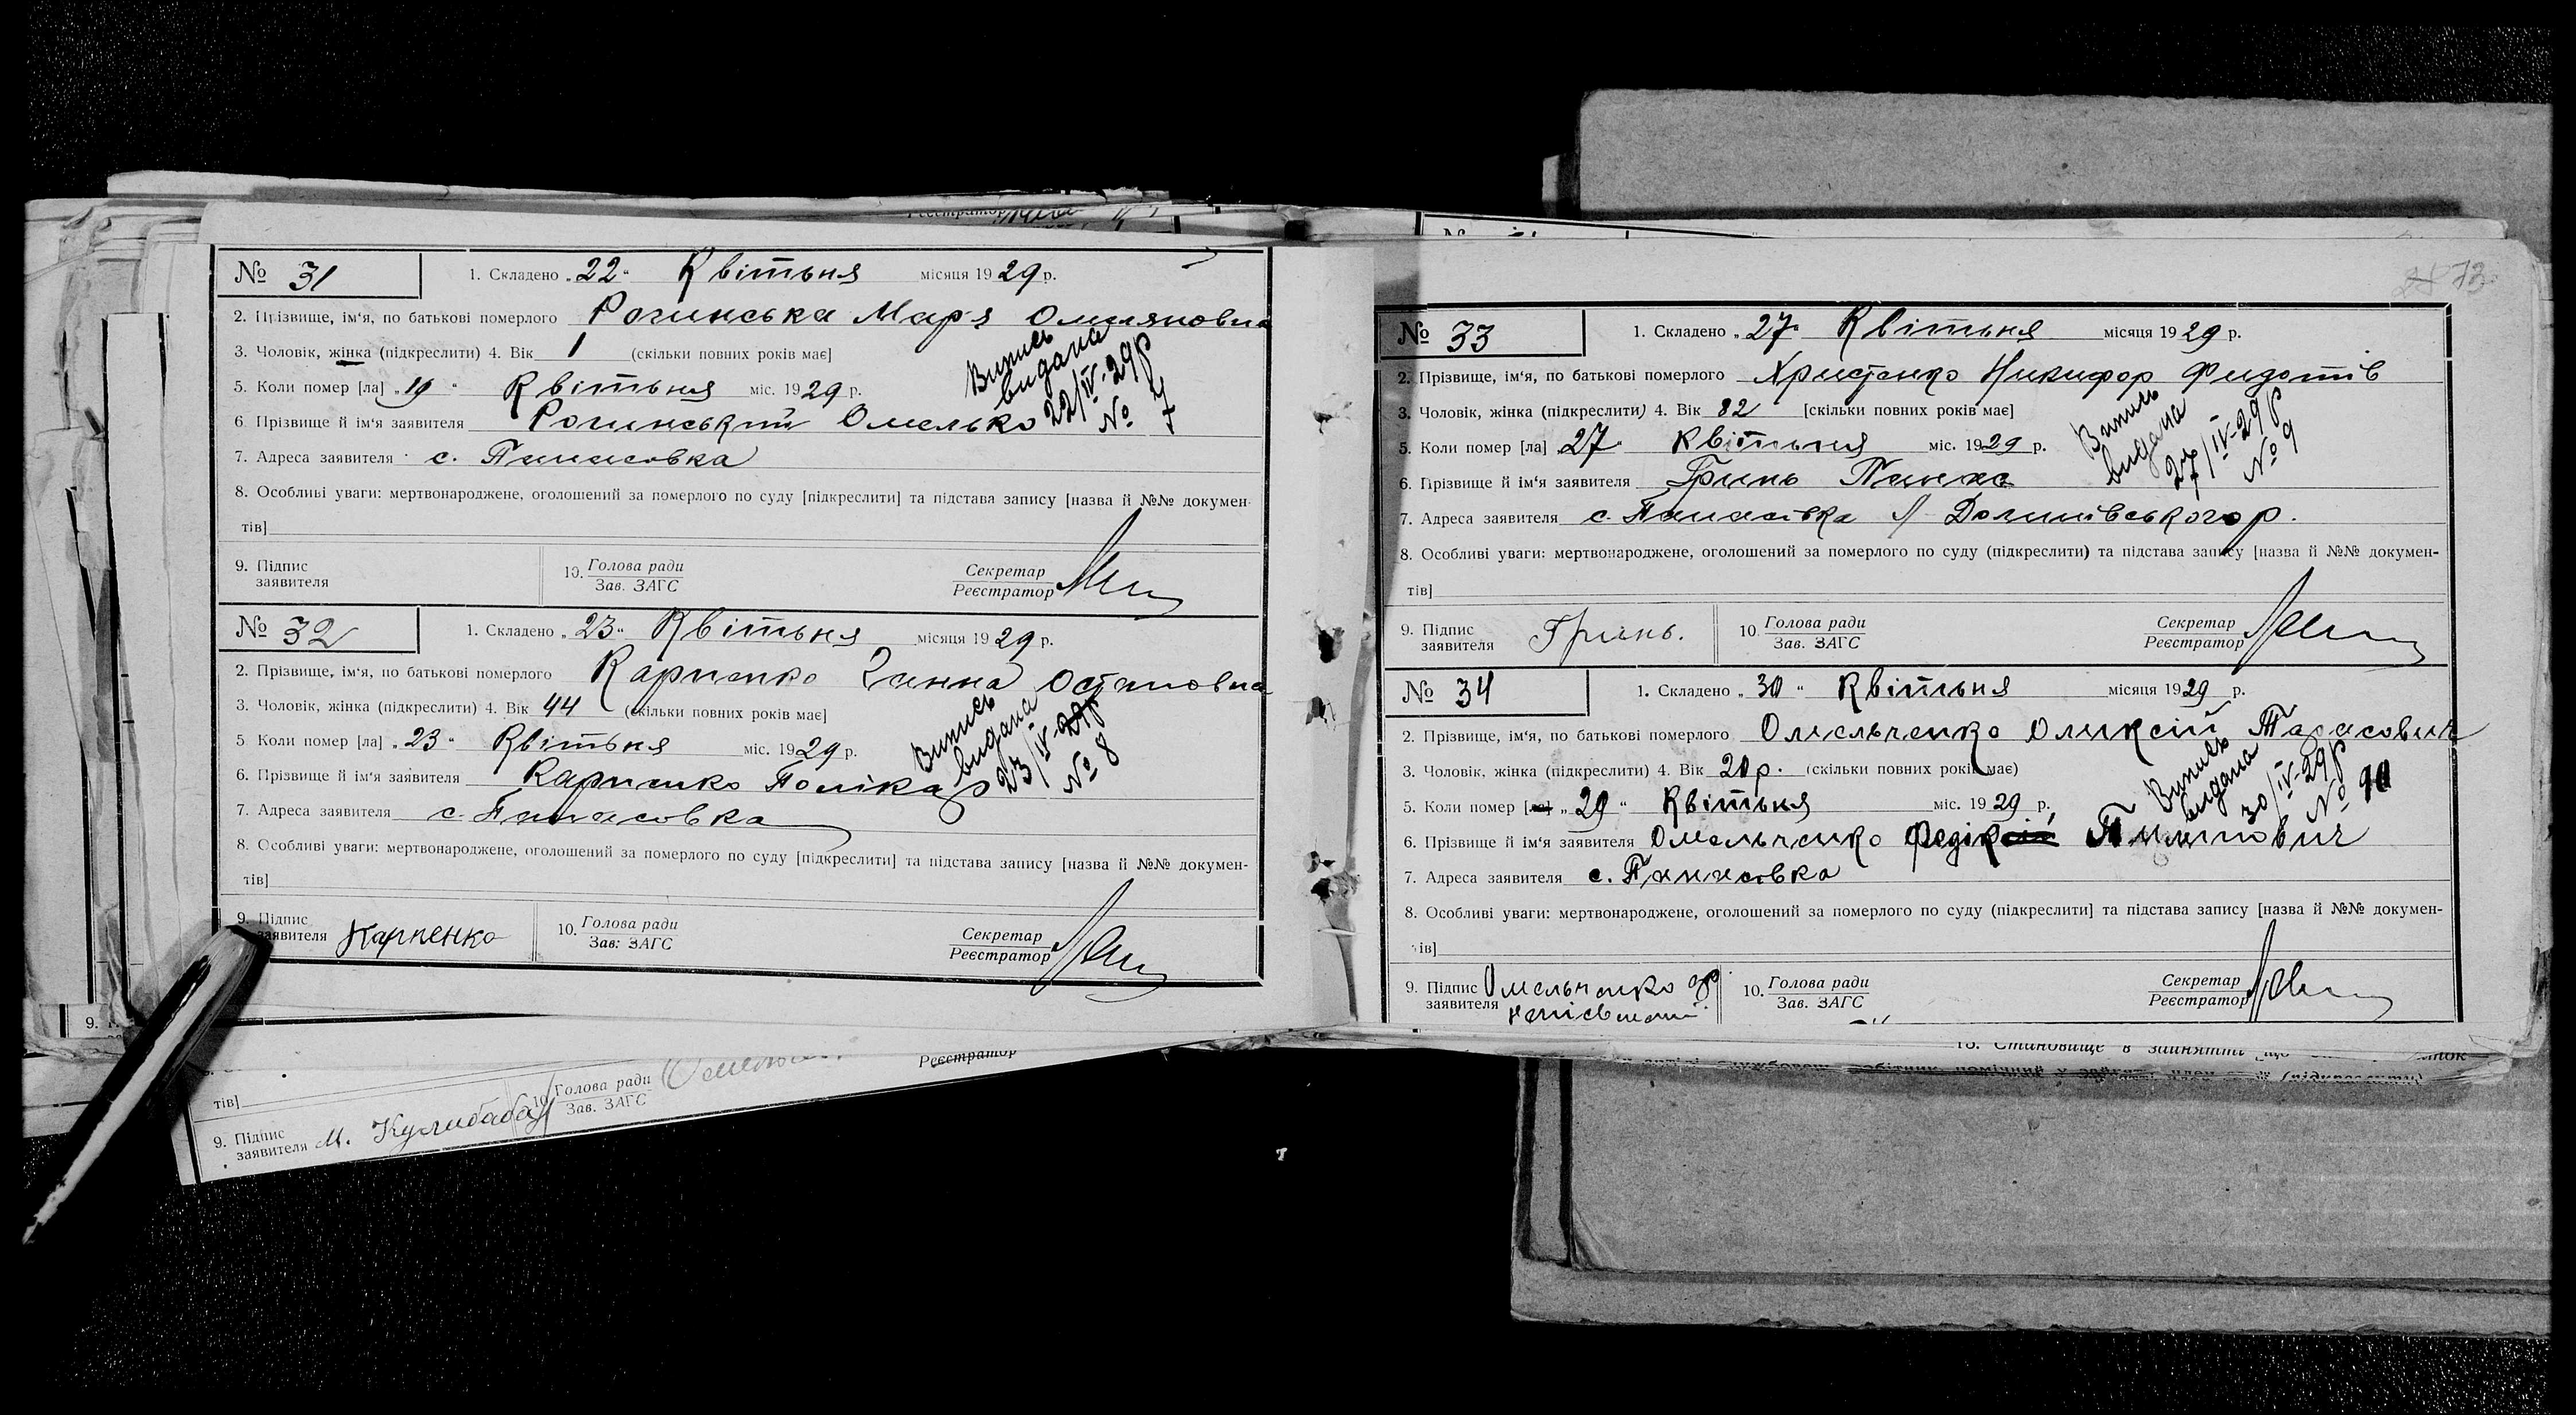 № 31
1. Складено „22“ Квітьня місяця 1929 р.
2. Прізвище, ім‘я, по батькові померлого Рогинська Мар'я Омеляновна
3. Чоловік, жінка (підкреслити) 4. Вік 1 (скільки повних років має]
5. Коли помер [ла] „19“ Квітьня міс. 1929 р.
6. Прізвище й ім‘я заявителя Рогинський Омелько
7. Адреса заявителя с. Панасовка
Випись
видана
22/IV-29р
№ 7
8. Особливі уваги: мертвонароджене, оголошений за померлого по суду [підкреслити] та підстава запису [назва й №№ докумен-
тів]
9. Підпис
заявителя
10. Голова ради
Зав. ЗАГС
Секретар
Реєстратор
№ 32
1. Складено „23“ Квітьня місяця 1929 р.
2. Прізвище, ім‘я, по батькові померлого Карпенко Ганна Остаповна
3. Чоловік, жінка (підкреслити) 4. Вік 44 (скільки повних років має]
5. Коли помер [ла] „23“ Квітьня міс. 1929 р.
6. Прізвище й ім‘я заявителя Карпенко Полікар
7. Адреса заявителя с. Панасовка
Випись
видана
23/IV-29р
№ 8
8. Особливі уваги: мертвонароджене, оголошений за померлого по суду [підкреслити] та підстава запису [назва й №№ докумен-
тів]
9. Підпис
заявителя Карпенко
10. Голова ради
Зав: ЗАГС
Секретар
Реєстратор
тів]
9. Підпис
заявителя М. Кулибаба
10. Голова ради
Зав. ЗАГС
Реєстратор
73
№ 33
1. Складено „27“ Квітьня місяця 1929 р.
2. Прізвище, ім‘я, по батькові померлого Христенко Никифор Фидотів
3. Чоловік, жінка (підкреслити) 4. Вік 82 [скільки повних років має]
5. Коли помер [ла] „27“ Квітьня міс. 1929 р.
6. Прізвище й ім‘я заявителя Гринь Панас
7. Адреса заявителя с. Панасівка
Випись
видана
27/IV-29р
№ 9
8. Особливі уваги: мертвонароджене, оголошений за померлого по суду (підкреслити) та підстава запису [назва й №№ докумен-
тів]
9. Підпис
заявителя Гринь.
10. Голова ради
Зав. ЗАГС
Секретар
Реєстратор
№ 34
1. Складено „30“ Квітьня місяця 1929 р.
2. Прізвище, ім‘я, по батькові померлого Омельченко Олексій Тарасович
3. Чоловік, жінка (підкреслити) 4. Вік 20р. (скільки повних років має)
5. Коли помер [ла] „29“ Квітьня міс. 1929 р.
6. Прізвище й ім‘я заявителя Омельченко
7. Адреса заявителя с. Панасовка
Випись
видана
30/IV-29р
№ 10
8. Особливі уваги: мертвонароджене, оголошений за померлого по суду (підкреслити] та підстава запису [назва й №№ докумен-
тів]
9. Підпис
заявителя Омельченко
10. Голова ради
Зав. ЗАГС
Секретар
Реєстратор